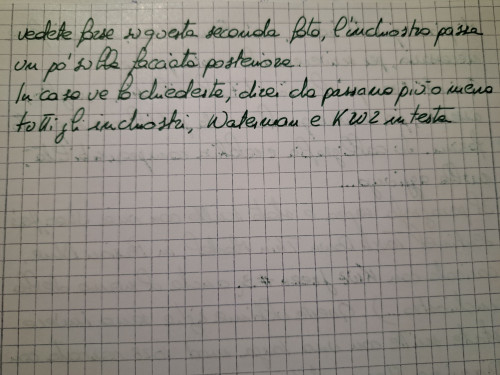 vedete forse su questa seconda foto, l'inchiostro passa
un po' sulla facciata posteriore.
In caso ve lo chiedeste, direi che passano più o meno
tutti gli inchiostri, Waterman e KWZ in testa